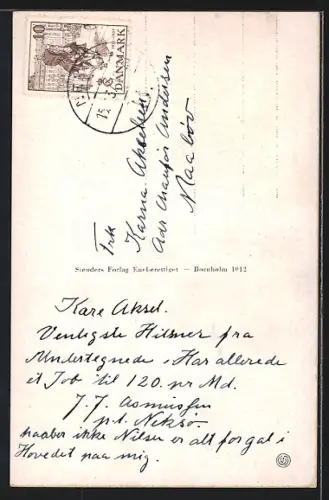 10
DANMARK
Frk
Karna Akselsen
Adr Chaufør Andersen
Maaløv
Stenders Forlag Eneberettiget — Bornholm 1012
Kære Aksel.
Venligste Hilsner fra
Undertegnede. Har allerede
et Job til 120. pr Md.
J. J. Asmussen
p.t. Neksø
haaber ikke Nilsen er alt for gal i
Hovedet paa mig.